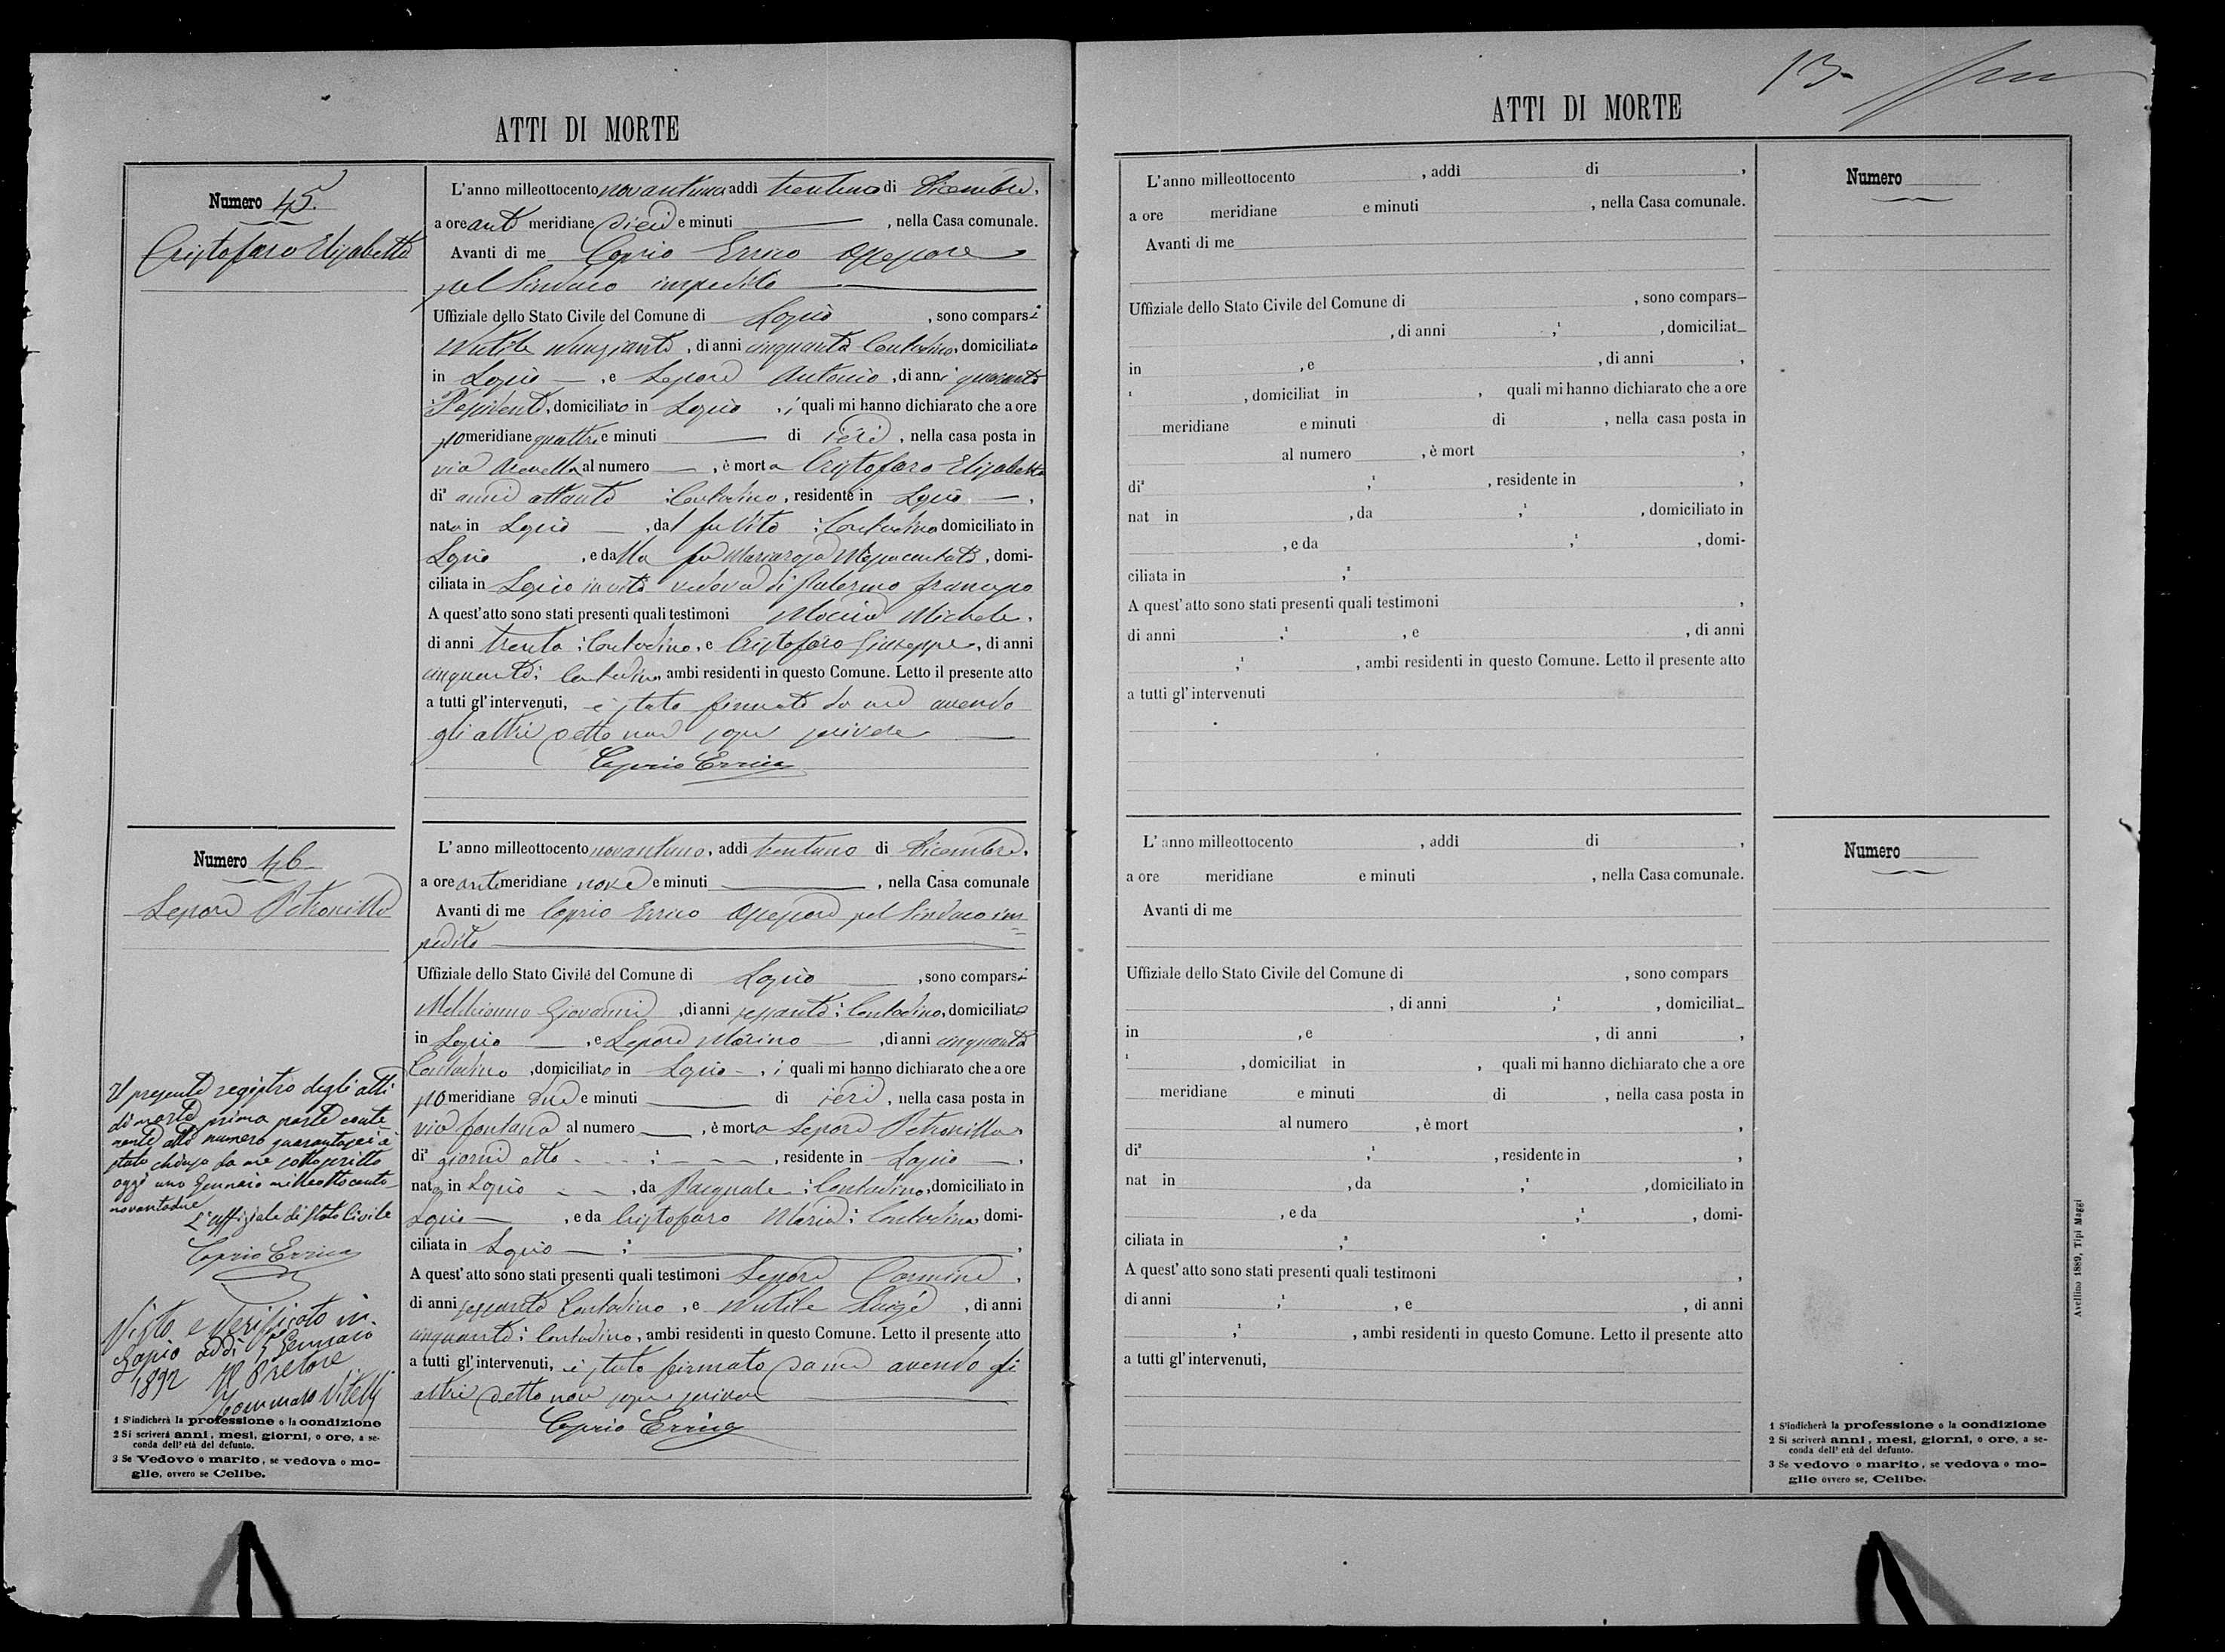 ATTI DI MORTE
Numero 45.
Cristofaro Elisabetta
L'anno milleottocento novantuno addì trentuno di Dicembre,
a ore anti meridiane dieci e minuti , nella Casa comunale.
Avanti di me Caprio Errico Assessore
pel Sindaco impedito
Uffiziale dello Stato Civile del Comune di Lapio , sono comparsi
Nutile Nunziante , di anni cinquanta Contadino, domiciliato
in Lapio , e Lepore Antonio , di anni quaranta
, domiciliato in Lapio , i quali mi hanno dichiarato che a ore
po meridiane quattro e minuti di ieri , nella casa posta in
via al numero , è morta Cristofaro Elisabetta
di² anni ottanta : Contadina, residente in Lapio ,
nata in Lapio , dal fu Vito : Contadino domiciliato in
Lapio , e dalla fu Mariarosa , domi-
ciliata in Lapio in vita vedova di Palermo
A quest'atto sono stati presenti quali testimoni Moccia Michele,
di anni trenta : Contadino, e Cristofaro Giuseppe, di anni
cinquanta : Contadino, ambi residenti in questo Comune. Letto il presente atto
a tutti gl'intervenuti, è stato firmato da me avendo
gli altri detto non saper scrivere
Caprio Errico
Numero 46
Lepore Petronilla
L'anno milleottocento novantuno, addì trentuno di Dicembre,
a ore antimeridiane nove e minuti , nella Casa comunale
Avanti di me Caprio Errico Assessore pel Sindaco im
pedito
Uffiziale dello Stato Civile del Comune di Lapio , sono comparsi
Melchionno Giovanni , di anni sessanta : Contadino, domiciliato
in Lapio , e Lepore Marino , di anni cinquanta
Contadino , domiciliato in Lapio , i quali mi hanno dichiarato che a ore
po meridiane due e minuti di ieri , nella casa posta in
via fontana al numero , è morta Lepore Petronilla
di² giorni otto : , residente in Lapio ,
nata in Lapio , da Pasquale : Contadino, domiciliato in
Lapio , e da Cristofaro Maria : Contadina domi-
ciliata in Lapio ;³ ,
A quest'atto sono stati presenti quali testimoni Lepore Carmine ,
di anni sessanta Contadino , e Nutile Luigi , di anni
cinquanta : Contadino, ambi residenti in questo Comune. Letto il presente atto
a tutti gl'intervenuti, è stato firmato da me avendo gli
altri detto non saper scrivere
Caprio Errico
Il presente registro degli atti
di morte prima parte conte
nente atti numero quarantasei è
stato chiuso da me sottoscritto
oggi uno Gennaio milleottocento
novantadue
L'uffiziale di Stato Civile
Caprio Errico
Visto e verificato in
Lapio addì 5 Gennaio
1892 Il Pretore
Vitelli
1 S'indicherà la professione o la condizione
2 Si scriverà anni, mesi, giorni, o ore, a se-
conda dell'età del defunto.
3 Se Vedovo o marito, se vedova o mo-
glie, ovvero se Celibe.
13
ATTI DI MORTE
L'anno milleottocento , addì di ,
a ore meridiane e minuti , nella Casa comunale.
Avanti di me
Uffiziale dello Stato Civile del Comune di , sono compars
, di anni ;¹ , domiciliat
in , e , di anni ,
¹ , domiciliat in , quali mi hanno dichiarato che a ore
meridiane e minuti di , nella casa posta in
al numero , è mort ,
di² ;¹ , residente in ,
nat in , da ;¹ , domiciliato in
, e da ;¹ , domi-
ciliata in ;³
A quest'atto sono stati presenti quali testimoni ,
di anni ;¹ , e , di anni
;¹ , ambi residenti in questo Comune. Letto il presente atto
a tutti gl'intervenuti
Numero
L'anno milleottocento , addì di ,
a ore meridiane e minuti , nella Casa comunale.
Avanti di me
Uffiziale dello Stato Civile del Comune di , sono compars
, di anni ;¹ , domiciliat
in , e , di anni ,
¹ , domiciliat in , quali mi hanno dichiarato che a ore
meridiane e minuti di , nella casa posta in
al numero , è mort ,
di² ;¹ , residente in ,
nat in , da ;¹ , domiciliato in
, e da ;¹ , domi-
ciliata in ;³
A quest'atto sono stati presenti quali testimoni ,
di anni ;¹ , e , di anni
;¹ , ambi residenti in questo Comune. Letto il presente atto
a tutti gl'intervenuti,
Numero
1 S'indicherà la professione o la condizione
2 Si scriverà anni, mesi, giorni, o ore, a se-
conda dell'età del defunto.
3 Se vedovo o marito, se vedova o mo-
glie ovvero se, Celibe.
Avellino 1889, Tipi Maggi